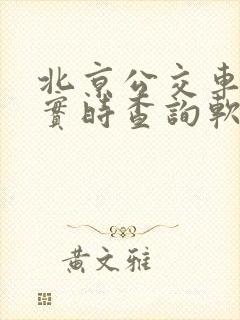 北京公交車
實時查詢軟
黃文雅